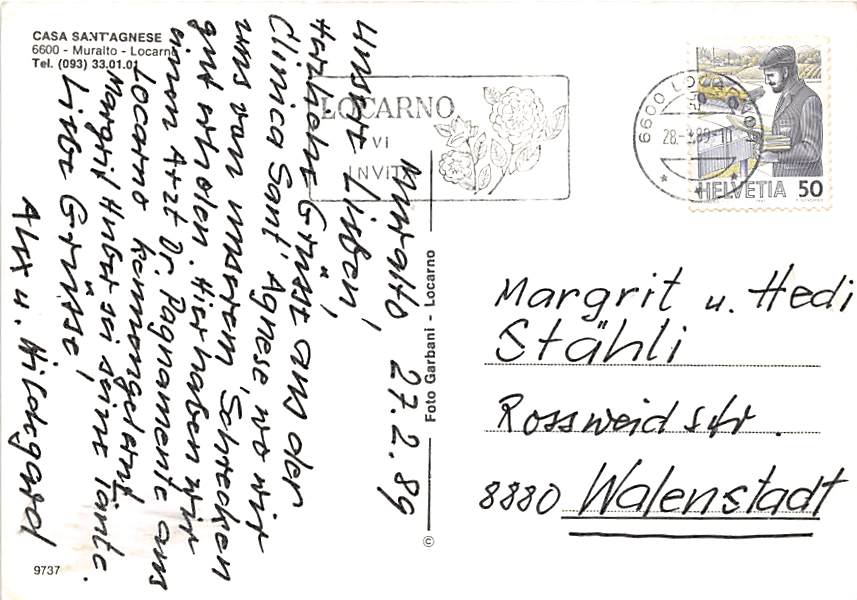 CASA SANT'AGNESE
6600 - Muralto - Locarno
Tel. (093) 33.01.01
Muralto, 27.2.89
Unsere Lieben,
Herzliche Grüsse aus der
Clinica Sant' Agnese, wo wir
uns von unserem Schrecken
gut erholen. Hier haben wir
einen Arzt Dr. Pagnamente aus
Locarno kennengelernt,
Margrit Huber sei seine Tante.
Liebe Grüsse,
Alex u. Hildegard
9737
Foto Garbani - Locarno
©
LOCARNO
VI
INVITA
6600 LOCARNO
28.-2.89-11
HELVETIA 50
Margrit u. Hedi
Stähli
Rossweidstr.
8880 Walenstadt